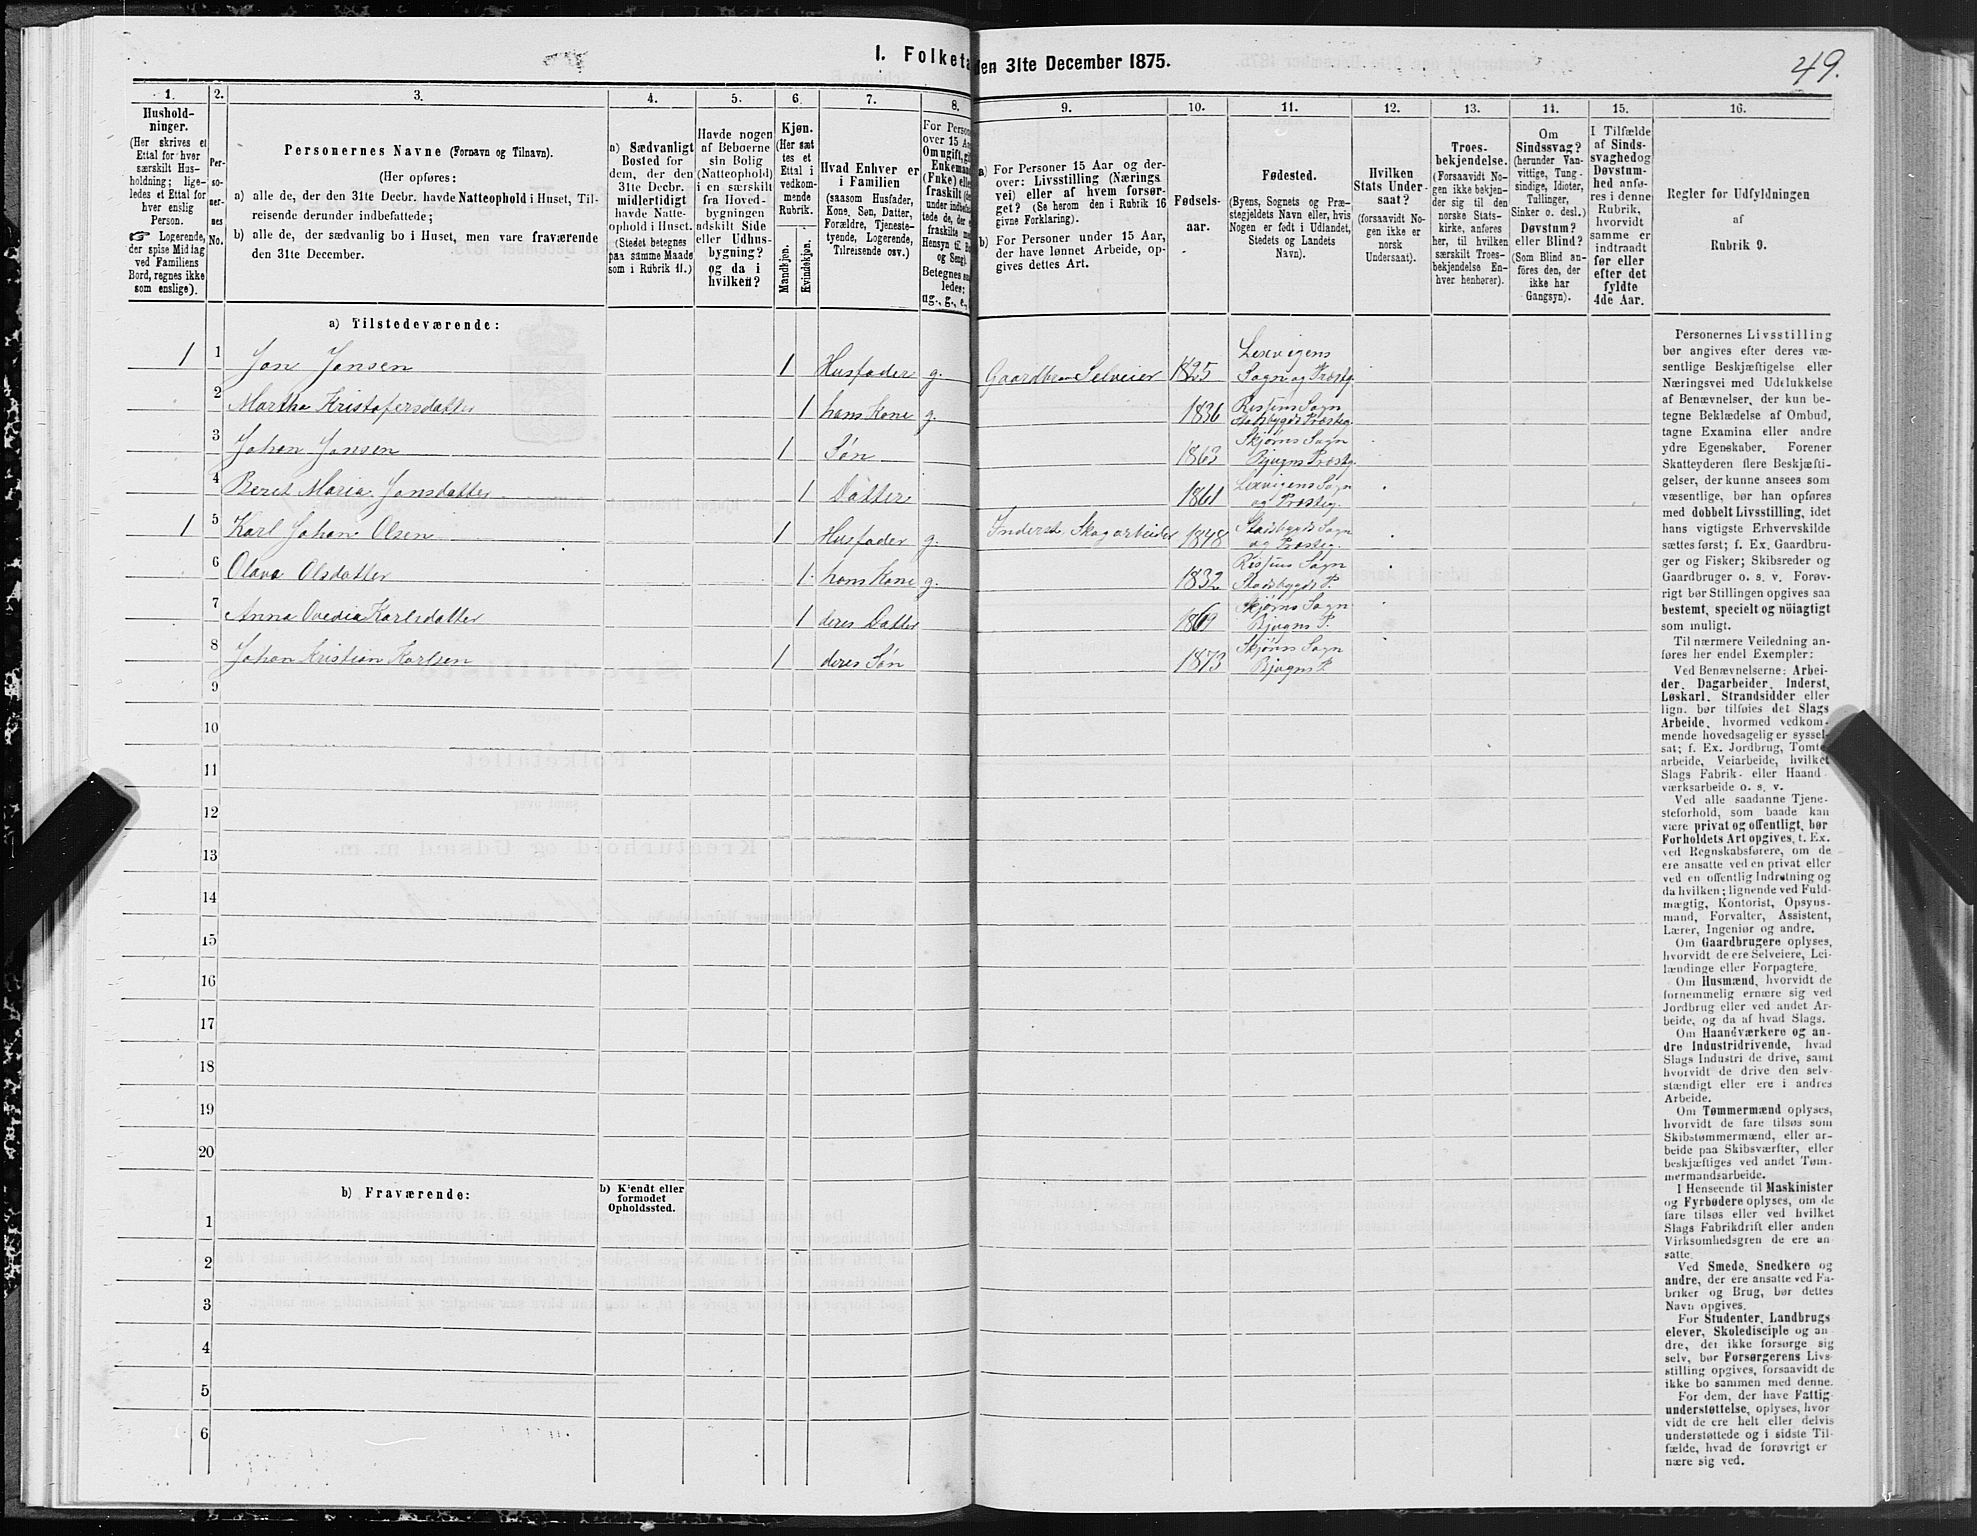 I. Folketa
den 31te December 1875.
49.
1.
2.
3.
4.
5.
6.
7.
8.
9.
10.
11.
12.
13.
14.
15.
16.
Hushold-
ninger.
(Her skrives et
Ettal for hver
særskilt Hus-
holdning; lige-
ledes et Ettal for
hver enslig
Person.
☞ Logerende,
der spise Middag
ved Familiens
Bord, regnes ikke
som enslige).
Per-
so-
ner-
nes
No.
Personernes Navne (Fornavn og Tilnavn).
(Her opføres:
a) alle de, der den 31te Decbr. havde Natteophold i Huset, Til-
reisende derunder indbefattede;
b) alle de, der sædvanlig bo i Huset, men vare fraværende
den 31te December.
a) Sædvanligt
Bosted for
dem, der den
31te Decbr.
midlertidigt
havde Natte-
ophold i Huset.
(Stedet betegnes
paa samme Maade
som i Rubrik 11.)
Havde nogen
af Beboerne
sin Bolig
(Natteophold)
i en særskilt
fra Hoved-
bygningen
adskilt Side
eller Udhus-
bygning?
og da i
hvilken?
Kjøn.
(Her sæt-
tes et
Ettal i
vedkom-
mende
Rubrik.
Mandkjøn.
Kvindekjøn.
Hvad Enhver er
i Familien
(saasom Husfader,
Kone, Søn, Datter,
Forældre, Tjeneste-
tyende, Logerende,
Tilreisende osv.)
For Person
over 15 Aa
Om ugift, gi
Enkeman
(Enke) elle
fraskilt (de
under indbefat-
tede de, der e
fraskilte me
Hensyn til Bo
og Seng)
Betegnes saa
ledes:
ug., g., e.,
a) For Personer 15 Aar og der-
over: Livsstilling (Nærings
vei) eller af hvem forsør-
get? (Se herom den i Rubrik 16
givne Forklaring).
b) For Personer under 15 Aar,
der have lønnet Arbeide, op-
gives dettes Art.
Fødsels-
aar.
Fødested.
(Byens, Sognets og Præ-
stegjeldets Navn eller, hvis
Nogen er født i Udlandet,
Stedets og Landets
Navn).
Hvilken
Stats Under-
saat?
(forsaavidt No-
gen ikke er
norsk
Undersaat).
Troes-
bekjendelse.
(Forsaavidt No-
gen ikke bekjen-
der sig til den
norske Stats-
kirke, anføres
her, til hvilken
særskilt Troes-
bekjendelse En-
hver henhører).
Om
Sindssvag?
(herunder Van-
vittige, Tung-
sindige, Idioter,
Tullinger,
Sinker o. desl.)
Døvstum?
eller Blind?
(Som Blind an-
føres den, der
ikke har
Gangsyn).
I Tilfælde
af Sinds-
svaghed og
Døvstum-
hed anfø-
res i denne
Rubrik,
hvorvidt
samme er
indtraadt
før eller
efter det
fyldte
4de Aar.
Regler for Udfyldningen
af
Rubrik 9.
a) Tilstedeværende:
1 1 Jon Jonsen 1 Husfader g. Gaardbr Selveier 1825 Lexvigens
Sogn og Præstg.
2 Martha Kristofersdatter 1 hans Kone g. 1836 Rissens Sogn
Stadsbygds Præsteg.
3 Johan Jonsen 1 Søn 1863 Skjørns Sogn
Bjugns Præstg.
4 Beret Maria Jonsdatter 1 Datter 1861 Lexvigens Sogn
og Præsteg.
1 5 Karl Johan Olsen 1 Husfader g. Inderst, Skogarbeider 1848 Stadsbygds Sogn
og Præsteg.
6 Olava Olsdatter 1 hans Kone g. 1832 Rissens Sogn
Stadsbygds P.
7 Anna Ovedia Karlsdatter 1 deres Datter 1869 Skjørns Sogn
Bjugns P.
8 Johan Kristian Karlsen 1 deres Søn 1873 Skjørns Sogn
Bjugns P.
9
10
11
12
13
14
15
16
17
18
19
20
b) Fraværende:
b) Kjendt eller
formodet
Opholdssted.
1
2
3
4
5
6
Personernes Livsstilling
bør angives efter deres væ-
sentlige Beskjæftigelse eller
Næringsvei med Udelukkelse
af Benævnelser, der kun be-
tegne Beklædelse af Ombud,
tagne Examina eller andre
ydre Egenskaber. Forener
Skatteyderen flere Beskjæfti-
gelser, der kunne ansees som
væsentlige, bør han opføres
med dobbelt Livsstilling, idet
hans vigtigste Erhvervskilde
sættes først; f. Ex. Gaardbru-
ger og Fisker; Skibsreder og
Gaardbruger o. s. v. Forøv-
rigt bør Stillingen opgives saa
bestemt, specielt og nöiagtigt
som muligt.
Til nærmere Veiledning an-
føres her endel Exempler:
Ved Benævnelserne: Arbei-
der, Dagarbeider, Inderst,
Løskarl, Strandsidder eller
lign. bør tilføies det Slags
Arbeide, hvormed vedkom-
mende hovedsagelig er syssel-
sat; f. Ex. Jordbrug, Tomte-
arbeide, Veiarbeide, hvilket
Slags Fabrik- eller Haand-
værksarbeide o. s. v.
Ved alle saadanne Tjene-
steforhold, som baade kan
være privat og offentligt, bør
Forholdets Art opgives, t. Ex.
ved Regnskabsførere, om de
ere ansatte ved en privat eller
ved en offentlig Indretning og
da hvilken; lignende ved Fuld-
mægtig, Kontorist, Opsyns-
mand, Forvalter, Assistent,
Lærer, Ingeniør og andre.
Om Gaardbrugere oplyses,
hvorvidt de ere Selveiere, Lei-
lændinge eller Forpagtere.
Om Husmænd, hvorvidt de
fornemmelig ernære sig ved
Jordbrug eller ved andet Ar-
beide, og da af hvad Slags.
Om Haandværkere og an-
dre Industridrivende, hvad
Slags Industri de drive, samt
hvorvidt de drive den selv-
stændigt eller ere i andres
Arbeide.
Om Tømmermænd oplyses,
hvorvidt de fare tilsøs som
Skibstømmermænd, eller ar-
beide paa Skibsværfter, eller
beskjæftiges ved andet Tøm-
mermandsarbeide.
I Henseende til Maskinister
og Fyrbødere oplyses, om de
fare tilsøs eller ved hvilket
Slags Fabrikdrift eller anden
Virksomhedsgren de ere an-
satte.
Ved Smede, Snedkere og
andre, der ere ansatte ved Fa-
briker og Brug, bør dettes
Navn opgives.
For Studenter, Landbrugs
elever, Skoledisciple og an-
dre, der ikke forsørge sig
selv, bør Forsørgerens Livs-
stilling opgives, forsaavidt de
ikke bo sammen med denne.
For dem, der have Fattig-
understøttelse, oplyses, hvor-
vidt de ere helt eller delvis
understøttede og i sidste Til-
fælde, hvad de forøvrigt er
nære sig ved.